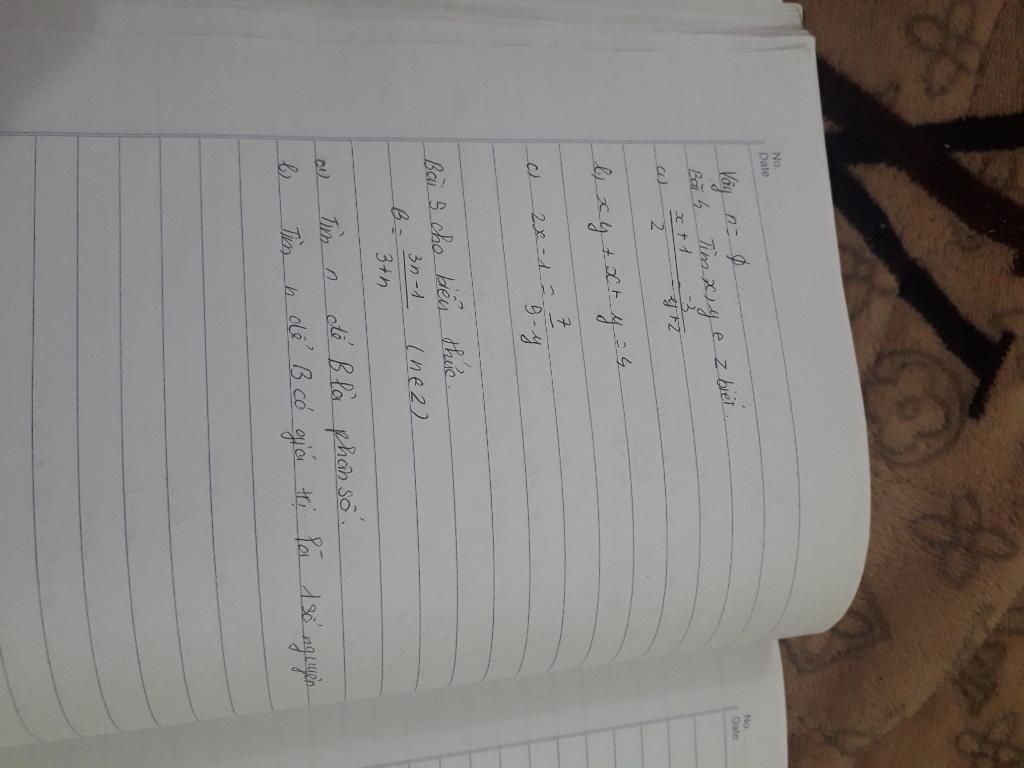 No.
Date
Vậy n = ϕ
Bài 4 Tìm x, y e z biết
a) x + 1 / 2 = 3 / y + 2
b) x y + x + y = 4
c) 2x - 1 = 7 / 9 - y
Bài 5 cho biểu thức.
B = 3n - 1 / 3 + n (n e z)
a) Tìm n để B là phân số.
b) Tìm n để B có giá trị là 1 số nguyên
No.
Date